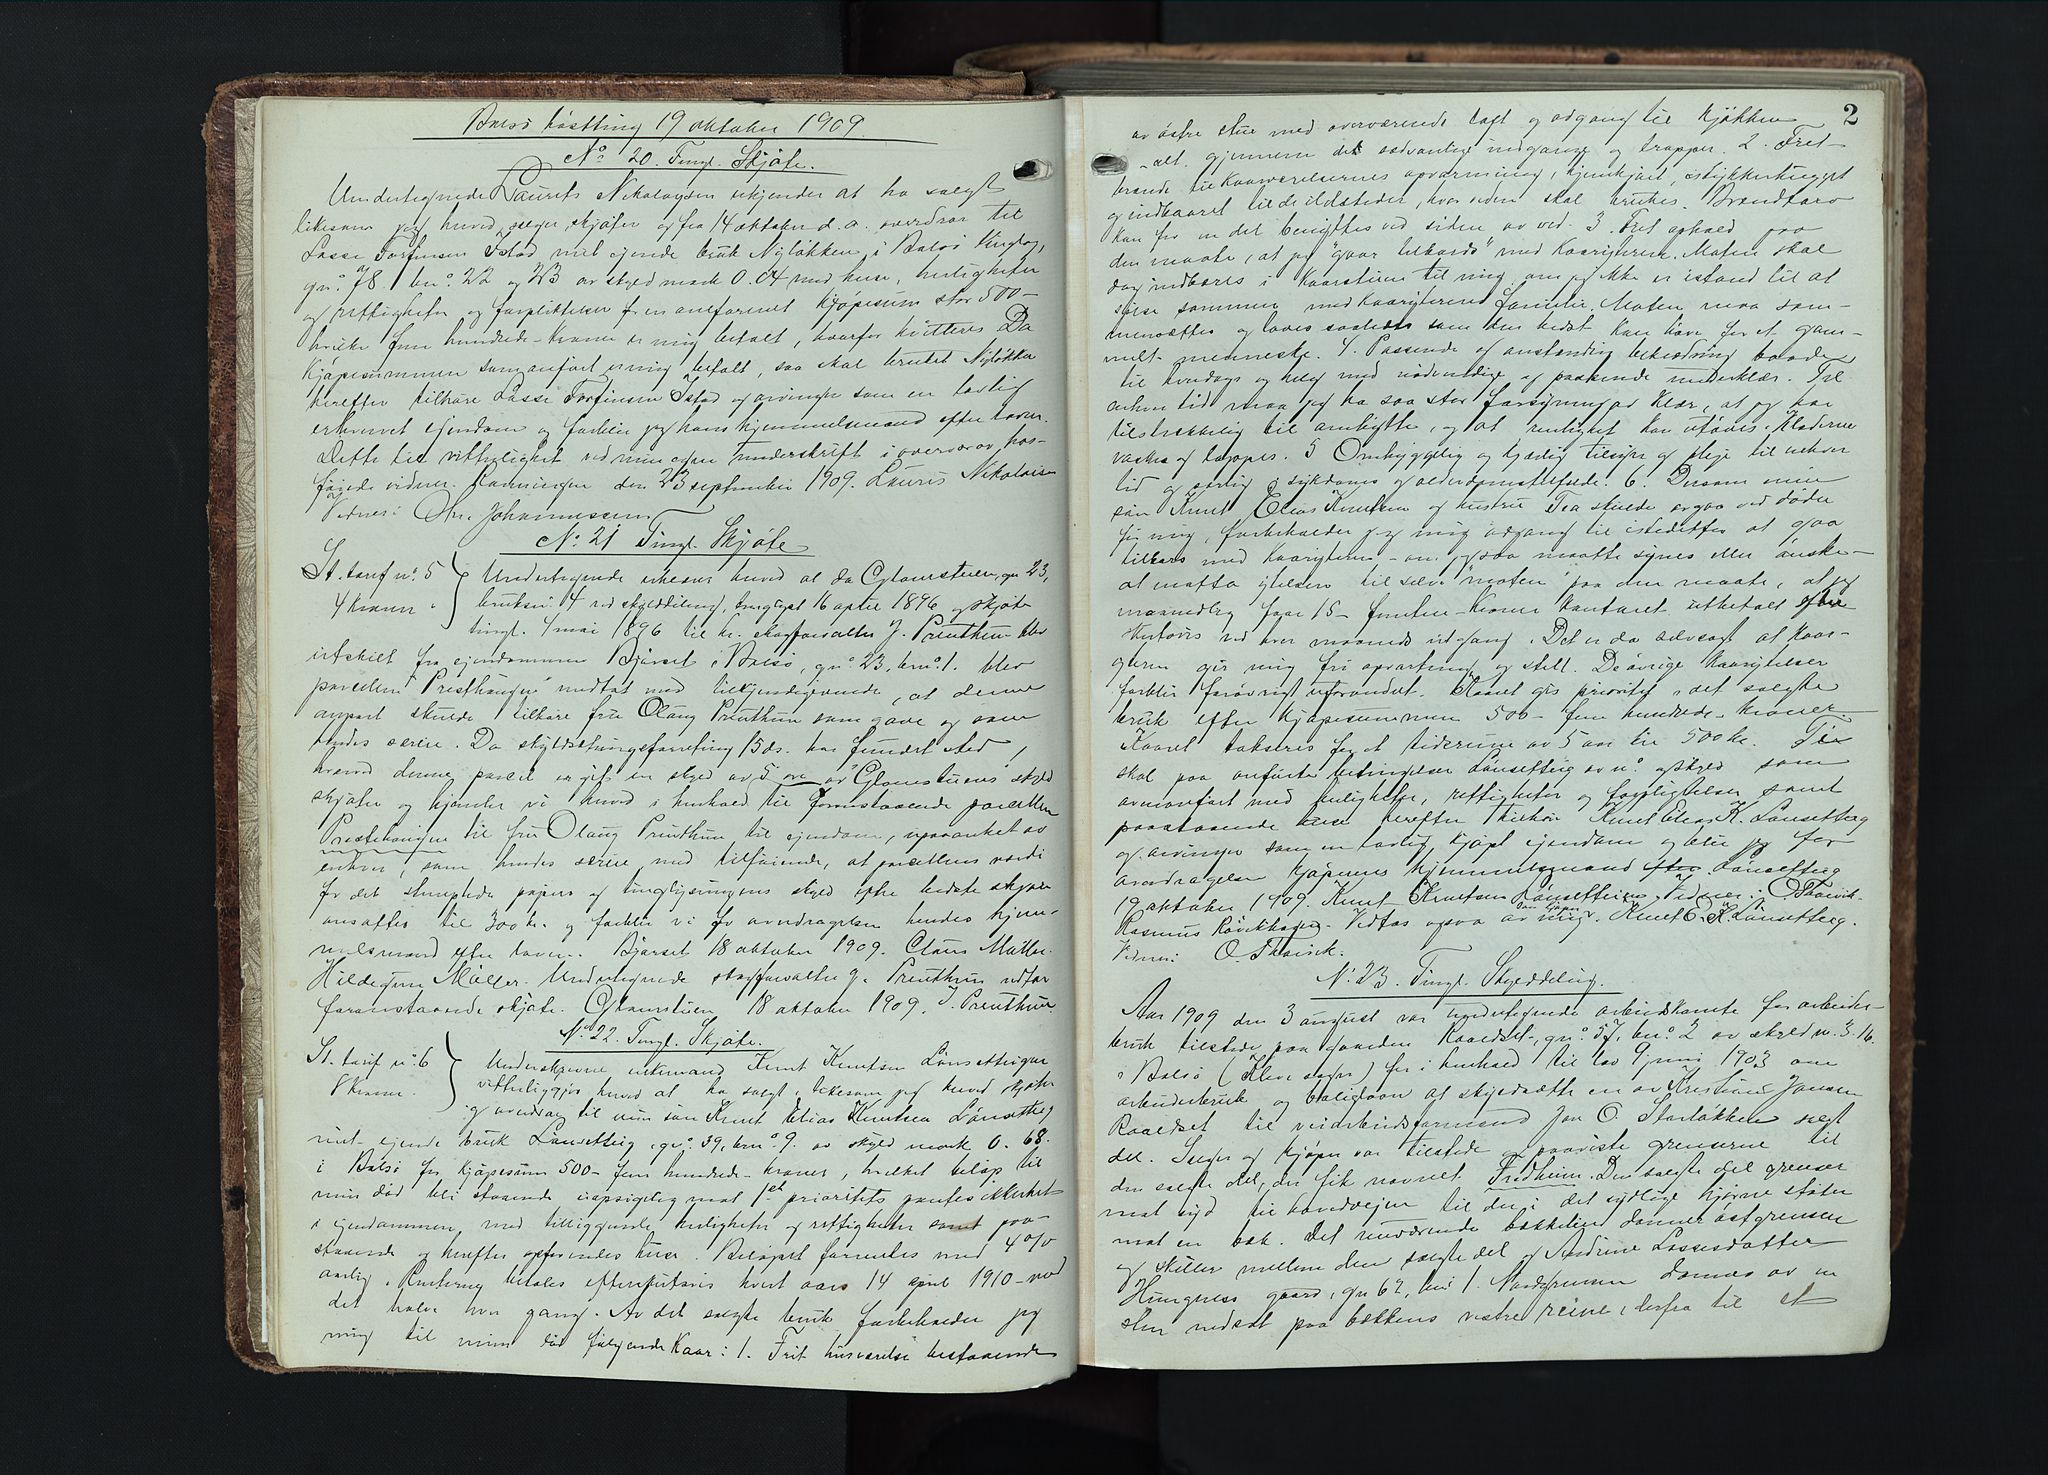 Bolsø høstting 19 oktober 1909.
No 20. Tingl. Skjøte.
Undertegnede Laurits Nikolaysen erkjender at ha solgt
likesom jeg herved sælger, skjøter og fra 14 oktober d. a. overdrar til
Lasse Torfinsen Istad mit eiende bruk Nyløkken i Bolsø tinglag,
gno 78 bno 22 og 23 av skyld mark 0.04 med huse, herligheter
og rettigheter og forpliktelser for en omforenet kjøpesum stor 500 -
hvilke fem hundrede - kroner er mig betalt, hvorfor kvitteres. Da
kjøpesummen som anført er mig betalt, saa skal bruket Nyløkken
herefter tilhøre Lasse Torfinsen Istad og arvinger som en lovlig
erhvervet eiendom og forblir jeg hans hjemmelsmand efter loven.
Dette til vitterlighet ved min egen underskrift i overvær av hos-
føiede vidner. den 23 september 1909. Lauris Nikolaisen
Vidner: Chr. Johannessen
No 21 Tingl. Skjøte
St. tarif no 5 Undertegnede erkjender herved at da Glomstuen, gn 23,
4 kroner. bruksn. 4 ved skylddeling, tinglyst 16 april 1896 og skjøte
tingl. 4 mai 1896 til hr. skogforvalter J. Preuthun blev
utskilt fra eiendommen Bjørset i Bolsø, gno 23, bno 1. blev
parcellen "Presthaugen" medtat med tilkjendegivende, at denne
anpart skulde tilhøre fru Olaug Preuthun som gave og som
hendes særeie. Da skyldsætningsforretning 15 ds. har fundet sted,
hvorved denne parcel er git en skyld av 5 øre av Glomstuens skyld
skjøter og hjemler vi herved i henhold til foranstaaende parcellen
Prestehaugen til fru Olaug Preuthun til eiendom, upaaanket av
enhver, som hendes særeie med tilføiende, at parcellens værdi
for det stemplede papirs og tinglysningens skyld efter bedste skjøn
ansættes til 300 kr. og forblir vi for overdragelsen hendes hjem-
melsmænd efter loven. Bjørset 18 oktober 1909. Claus Müller.
Hildegun Müller. Undertegnede skogforvalter J. Preuthun vedtar
foranstaaende skjøte. Glomstuen 18 oktober 1909. J. Preuthun.
No 22. Tingl. Skjøte.
St. tarif no 6 Underskrevne enkemand Knut Knutsen Lønsetteigen
8 kroner. vitterliggjør herved at ha solgt, likesom jeg herved skjøter
og overdrag til min søn Knut Elias Knutsen Lønsetteig
mit eiende bruk Lønsetteig, gno 39, bno 9. av skyld mark 0.68.
i Bolsø for kjøpesum 500 - fem hundrede - kroner, hvilket beløp til
min død bli staaende uopsigelig mot 1st prioritets pantesikkerhet
i eiendommen, med tilliggende herligheter og rettigheter samt paa-
staaende og herefter opførendes huse. Beløpet forrentes med 4%
aarlig. Renterne betales efterskudsvis hvert aars 14 april 1910 - med
det halve hver gang. Av det solgte bruk forbeholder jeg
mig til min død følgende kaar: 1. Frit husværelse bestaaende
2
av østre stue med overværende loft og adgang til kjøkken
- alt gjennem de sædvanlige nedgange og trapper. 2. Frit
brænde til kaarværelsernes opvarmning, hjemkjørt, istykkerhugget
og indbaaret til de ildsteder, hvor veden skal brukes. Brændtorv
kan for en del benyttes ved siden av ved. 3. Frit ophold paa
den maate, at jeg "gaar tilbords" med kaaryteren. Maten skal
dog indbæres i kaarstuen til mig, om jeg ikke er istand til at
spise sammen med kaaryterens familie. Maten maa sam-
mensættes og laves saaledes som den bedst kan høve for et gam-
melt menneske. 4. Passende og anstændig beklædning baade
til hverdags og helg med nødvendige og passende underklær. Til
enhver tid maa jeg ha saa stor forsyning av klær, at jeg har
tilstrækkelig til ombytte, og at renlighet kan utøves. Klæderne
vaskes og lappes. 5 Omhyggelig og kjærlig tilsyn og pleie til enhver
tid og særlig i sykdoms og alderdomstilfælde. 6. Dersom min
søn Knut Elias Knutsen og hustru Tea skulde avgaa ved døden
før mig, forbeholder jeg mig adgang til istedetfor at gaa
tilbords med kaaryteren - om jeg saa maatte synes eller ønske -
at motta ytelsen til selve "maten" paa den maate, at jeg
maanedlig faar 15 - femten - kroner kontant utbetalt efter-
skudsvis ved hver maaneds utgang. Det er da selvsagt at kaar-
yteren gir mig fri opvartning og stell. De øvrige kaarytelser
forblir forøvrigt uforandret. Kaaret gis prioritet i det solgte
bruk efter kjøpesummen 500 - fem hundrede - kroner.
Kaaret takseres for et tidsrum av 5 aar til 500 kr. Til
skal paa anførte betingelser Lønsetteig av no og skyld som
ovenanført med herligheter, rettigheter og forpligtelser samt
paastaaende huse herefter tilhøre Knut Elias K. Lønsetteig
og arvinger som en lovlig kjøpt eiendom og blir jeg for
overdragelsen kjøperens hjemmelsmand. Lønsetteig
19 oktober 1909. Knut Knutsen Lønsetteigen. Vidner: O. Thorvik.
Rasmus Røvikhagen. Vedtas ogsaa av mig som kjøper. Knut E. K. Lønsetteig.
Vidner: O. Thorvik.
No 23. Tingl. Skylddeling.
Aar 1909 den 3 august var undertegnede arbeidskomite for arbeider-
bruk tilstede paa gaarden Raaldset, gno 57, bno 2 av skyld m. 3.16.
i Bolsø (Kleve sogn) for i henhold til lov 9 juni 1903 om
arbeiderbruk og boliglaan at skyldsætte en av Kristian Jonsen
Raaldset til veiarbeidsformand Jon O. Storløkken solgt
del. Sælger og kjøper var tilstede og paaviste grænserne til
den solgte del, der fik navnet Fredheim. Den solgte del grænser
mot syd til hovedveien til den i det sydlige hjørne støter
mot en bæk. Det nuværende bækkeleie danner østgrensen
og skiller mellem den solgte del og Andrine Lassesdatter
Hungnes gaard, gn 62, bn 1. Nordgrensen dannes av en
sten nedsat paa bækkens vestre reine, derfra til et